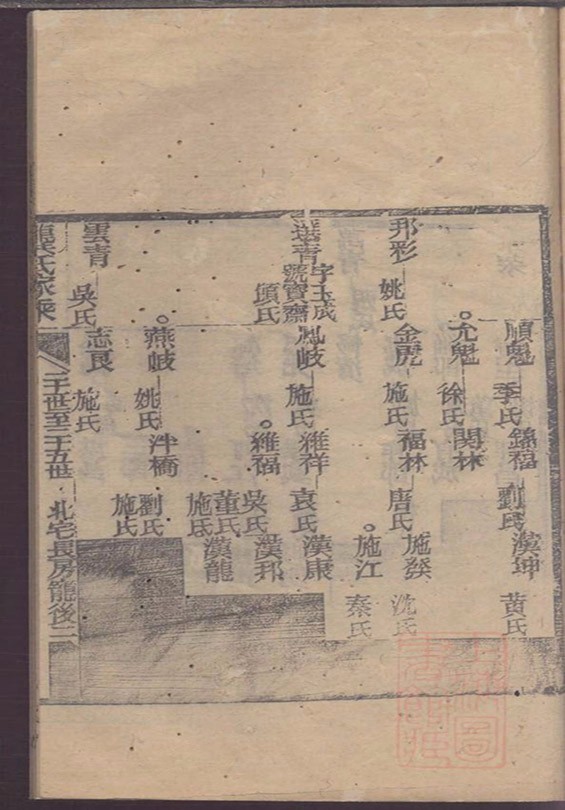 順魁 季氏 錦福 劉氏 漢坤 黃氏
允魁 徐氏 関林
邦彩 姚氏 金虎 施氏 福林 唐氏 施發 沈氏
施江 秦氏
選青 字士成 號寶齋 項氏 鳳岐 施氏 維祥 袁氏 漢康
維福 吳氏 漢邦
董氏 漢龍
施氏
燕岐 姚氏 泮橋 劉氏
施氏
雲青 吳氏 志良 施氏
氏家乘 二十世至二十五世 北宅長房龍後二